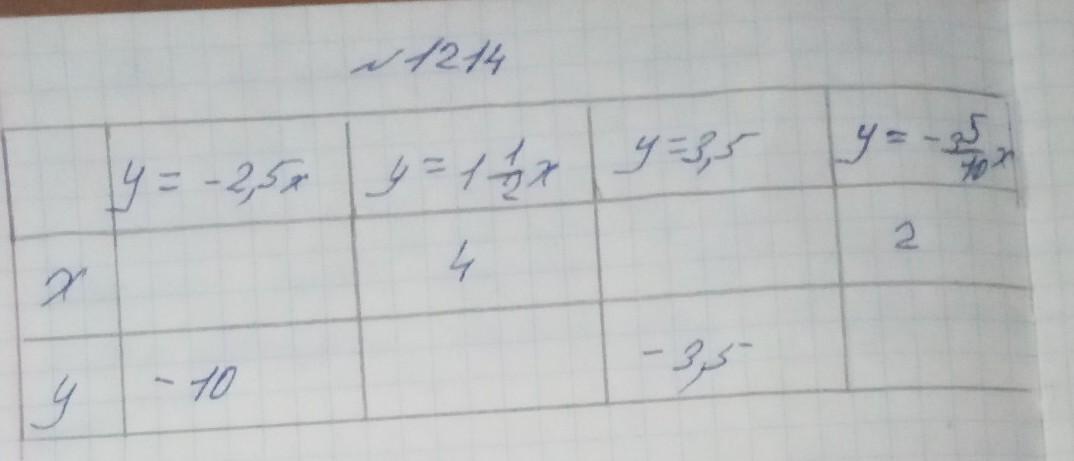 №1214
y = -2,5x y = 1 1/2 x y = 3,5 y = -3 5/10 x
x 4 2
y -10 -3,5